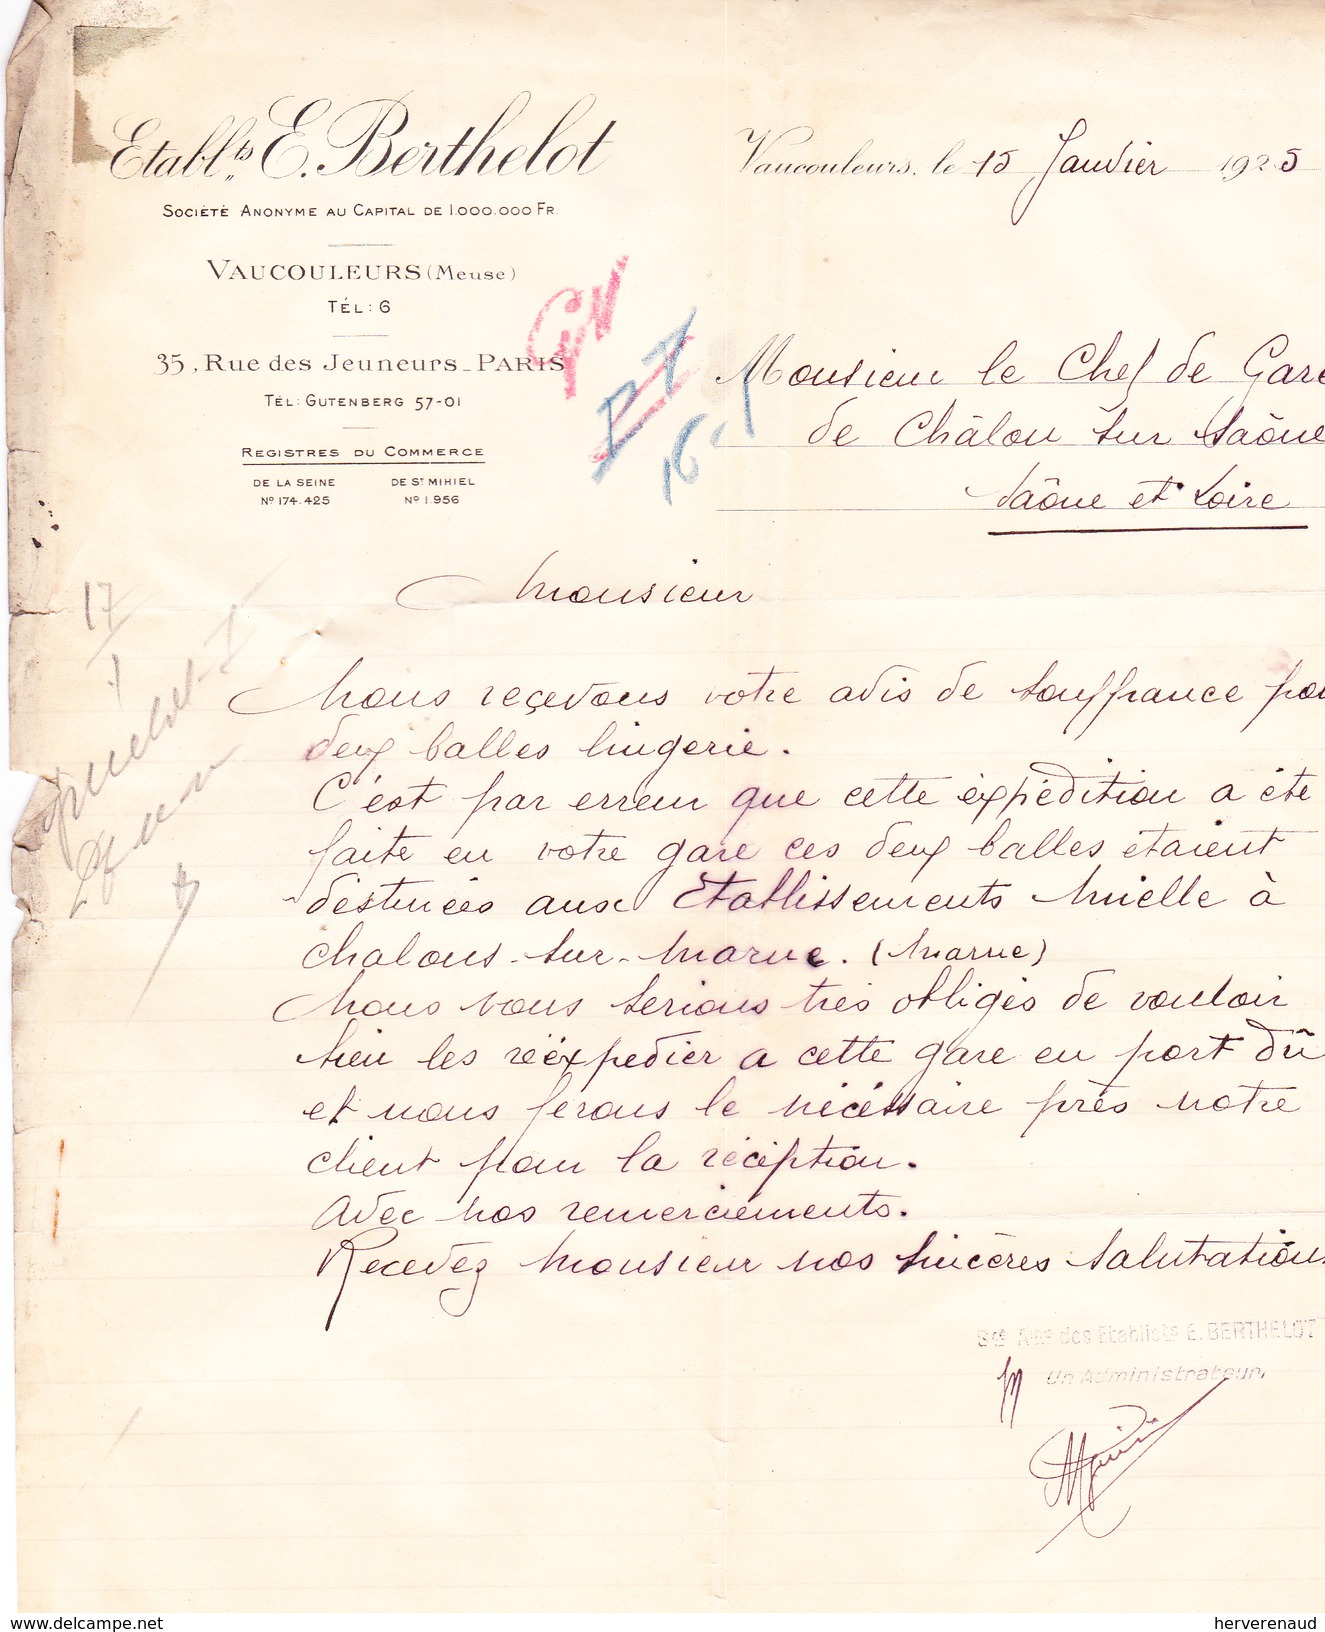 Etabl.ts E. Berthelot
Société Anonyme au Capital de 1.000.000 Fr.
VAUCOULEURS (Meuse)
TÉL: 6
35, Rue des Jeuneurs_PARIS
TÉL: GUTENBERG 57-01
REGISTRES DU COMMERCE
DE LA SEINE DE ST MIHIEL
No 174.425 No 1.956
Vaucouleurs, le 15 Janvier 1925
16-1
Monsieur le Chef de Gare
de Châlon sur Saône
Saône et Loire
17
1
Monsieur
Nous reçevons votre avis de souffrance pou
deux balles lingerie.
C'est par erreur que cette éxpédition a été
faite en votre gare ces deux balles étaient
déstinées aux Etablissements Mielle à
Chalons-sur-Marne. (Marne)
Nous vous serions très obligés de vouloir
bien les rééxpedier a cette gare en port dû
et nous ferons le nécéssaire près notre
client pour la réception.
Avec nos remerciements.
Recevez Monsieur nos sincères salutations.
Sté Ame des Etablists E. BERTHELOT
Un Administrateur,
www.delcampe.net
herverenaud